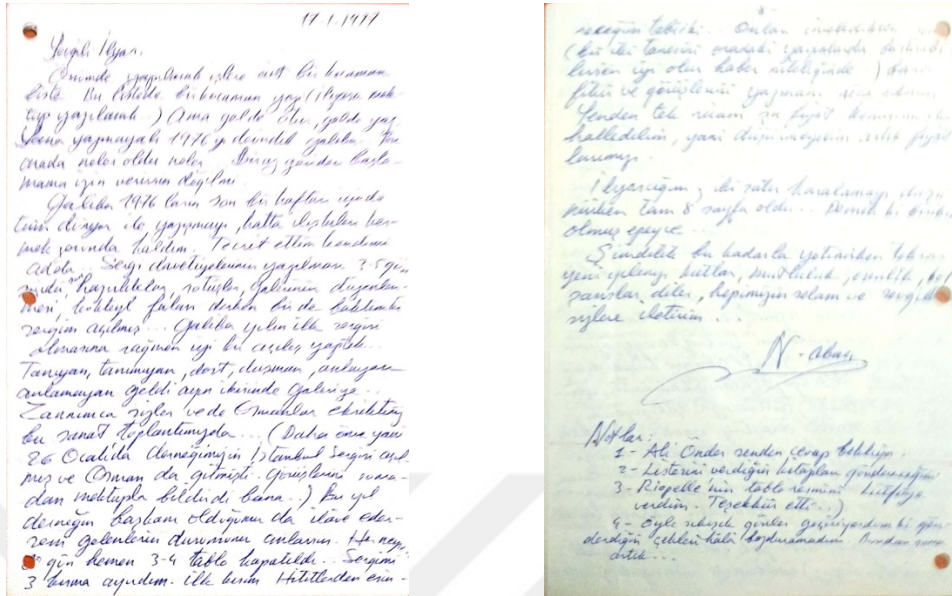 17.1.1977
Sevgili İlyas.
Önümde yapılacak işlere ait bir kocaman
liste. Bu listede bir kocaman yazı (İlyasa mek-
tup yazılacak..) Ama gelde otur, gelde yaz.
Sana yazmayalı 1976 yı devirdik galiba. Bu
arada neler oldu neler. Biraz yandan başla-
mama izin verirsin değilmi.
Galiba 1976 ların son bir haftası içinde
tüm dünya ile yazışmayı, hatta ilişkileri kes-
mek zorunda kaldım. Tecrit ettim kendimi
adeta.. Sergi davetiyelerinin yazılması 3-5 gün
sürdü, hazırlıklar, satışlar, galerinin düzenlen-
mesi, kokteyl falan derken birde baktımki
sergim açılmış... Galiba yılın ilk sergisi
olmasına rağmen iyi bir açılış yaptık...
Tanıyan, tanımayan, dost, düşman, anlayan
anlamayan geldi ayın ikisinde galeriye..
Zannımca sizler vede Osmanlar eksiktiniz
bu sanat toplantımızda... (Daha önce yani
26 Ocakda derneğimizin İstanbul Sergisi açıl-
mış ve Osman da gitmişti. Görüşlerini sonra-
dan mektupla bildirdi bana..) Bu yıl
derneğin başkanı olduğumu da ilave eder-
sem gelenlerin durumunu anlarsın. Herneyse
gün hemen 3-4 tablo kapatıldı... Sergimi
3 kısma ayırdım. ilk kısım Hititlerden esin-
8
tabiiki... Onları
(bu iki tanesini oradaki gazetelerde
iyi olur haber niteliğinde)
fikir ve görüşlerini yazmanı rica ederim
Senden tek ricam şu fiyat
halledelim, yani düşünmeyelim artık
İlyascığım, iki satır karalamayı
tam 8 sayfa oldu... Demek ki
olmuş epeyce...
Şimdilik bu kadarla yetinirken tekrar
yeni yılınızı kutlar, mutluluk, esenlik,
şanslar diler, hepimizin selam ve
sizlere iletirim...
N. abacı
Notlar:
1- Ali Önder senden cevap bekliyor.
2- Listesini verdiğin kitapları göndereceğim.
3- Riopelle'nin tablo resmini Lütfiye
verdim. Teşekkür etti...)
4- Öyle sıkışık günler geçiriyordum ki gön-
derdiğin çekleri hâlâ bozduramadım. Bundan sonra
artık...